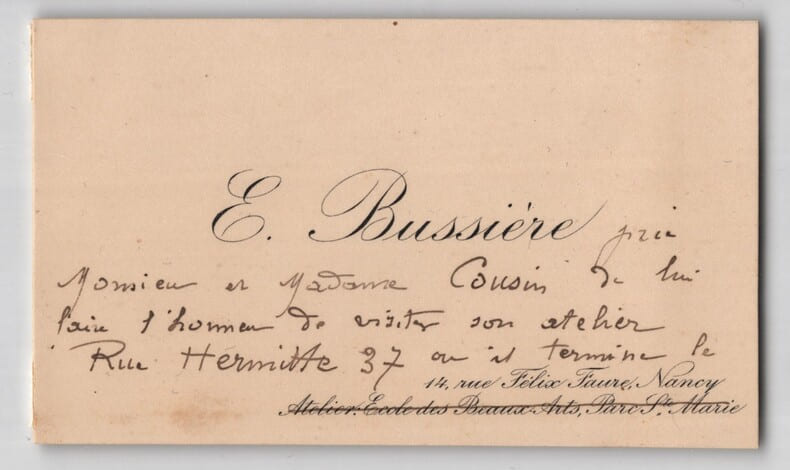 E. Bussière prie
Monsieur et Madame Cousin de lui
faire l'honneur de visiter son atelier
Rue Hermitte 37 ou il termine le
14, rue Félix Faure, Nancy
Atelier: École des Beaux-Arts, Parc Ste Marie